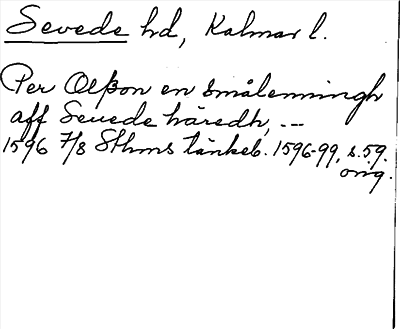 Sevede hd, Kalmar l.
Per Olßon en småleningh
aff Seuede häredh, ---
1596 7/8 Sthms tänkeb. 1596-99, s. 59.
orig.